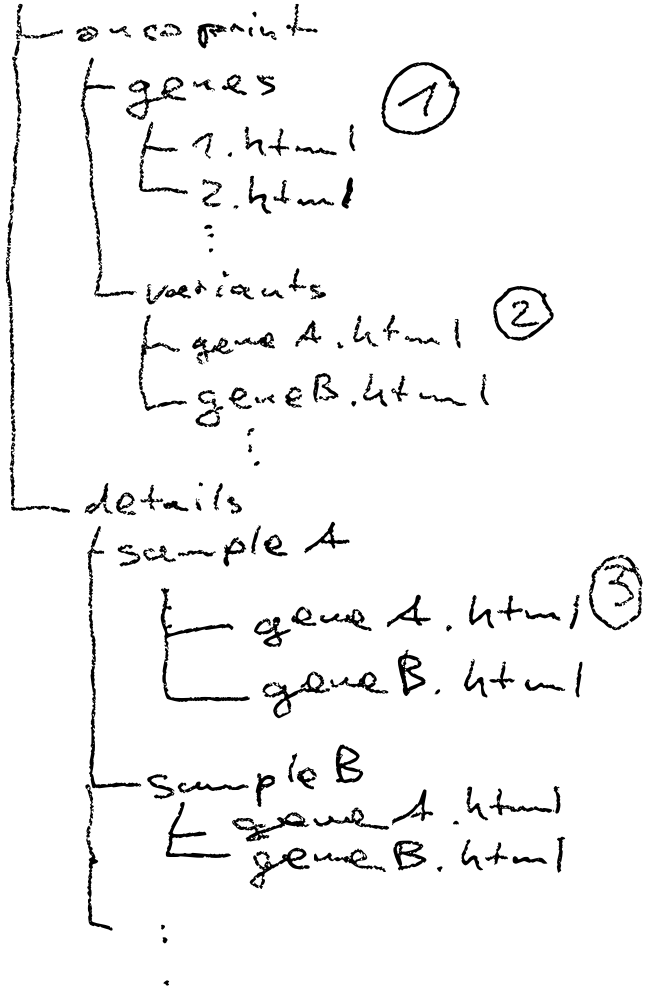 oncoprint
genes ①
1.html
2.html
⋮
variants ②
gene A.html
gene B.html
⋮
details
sample A
gene A.html ③
gene B.html
sample B
gene A.html
gene B.html
⋮